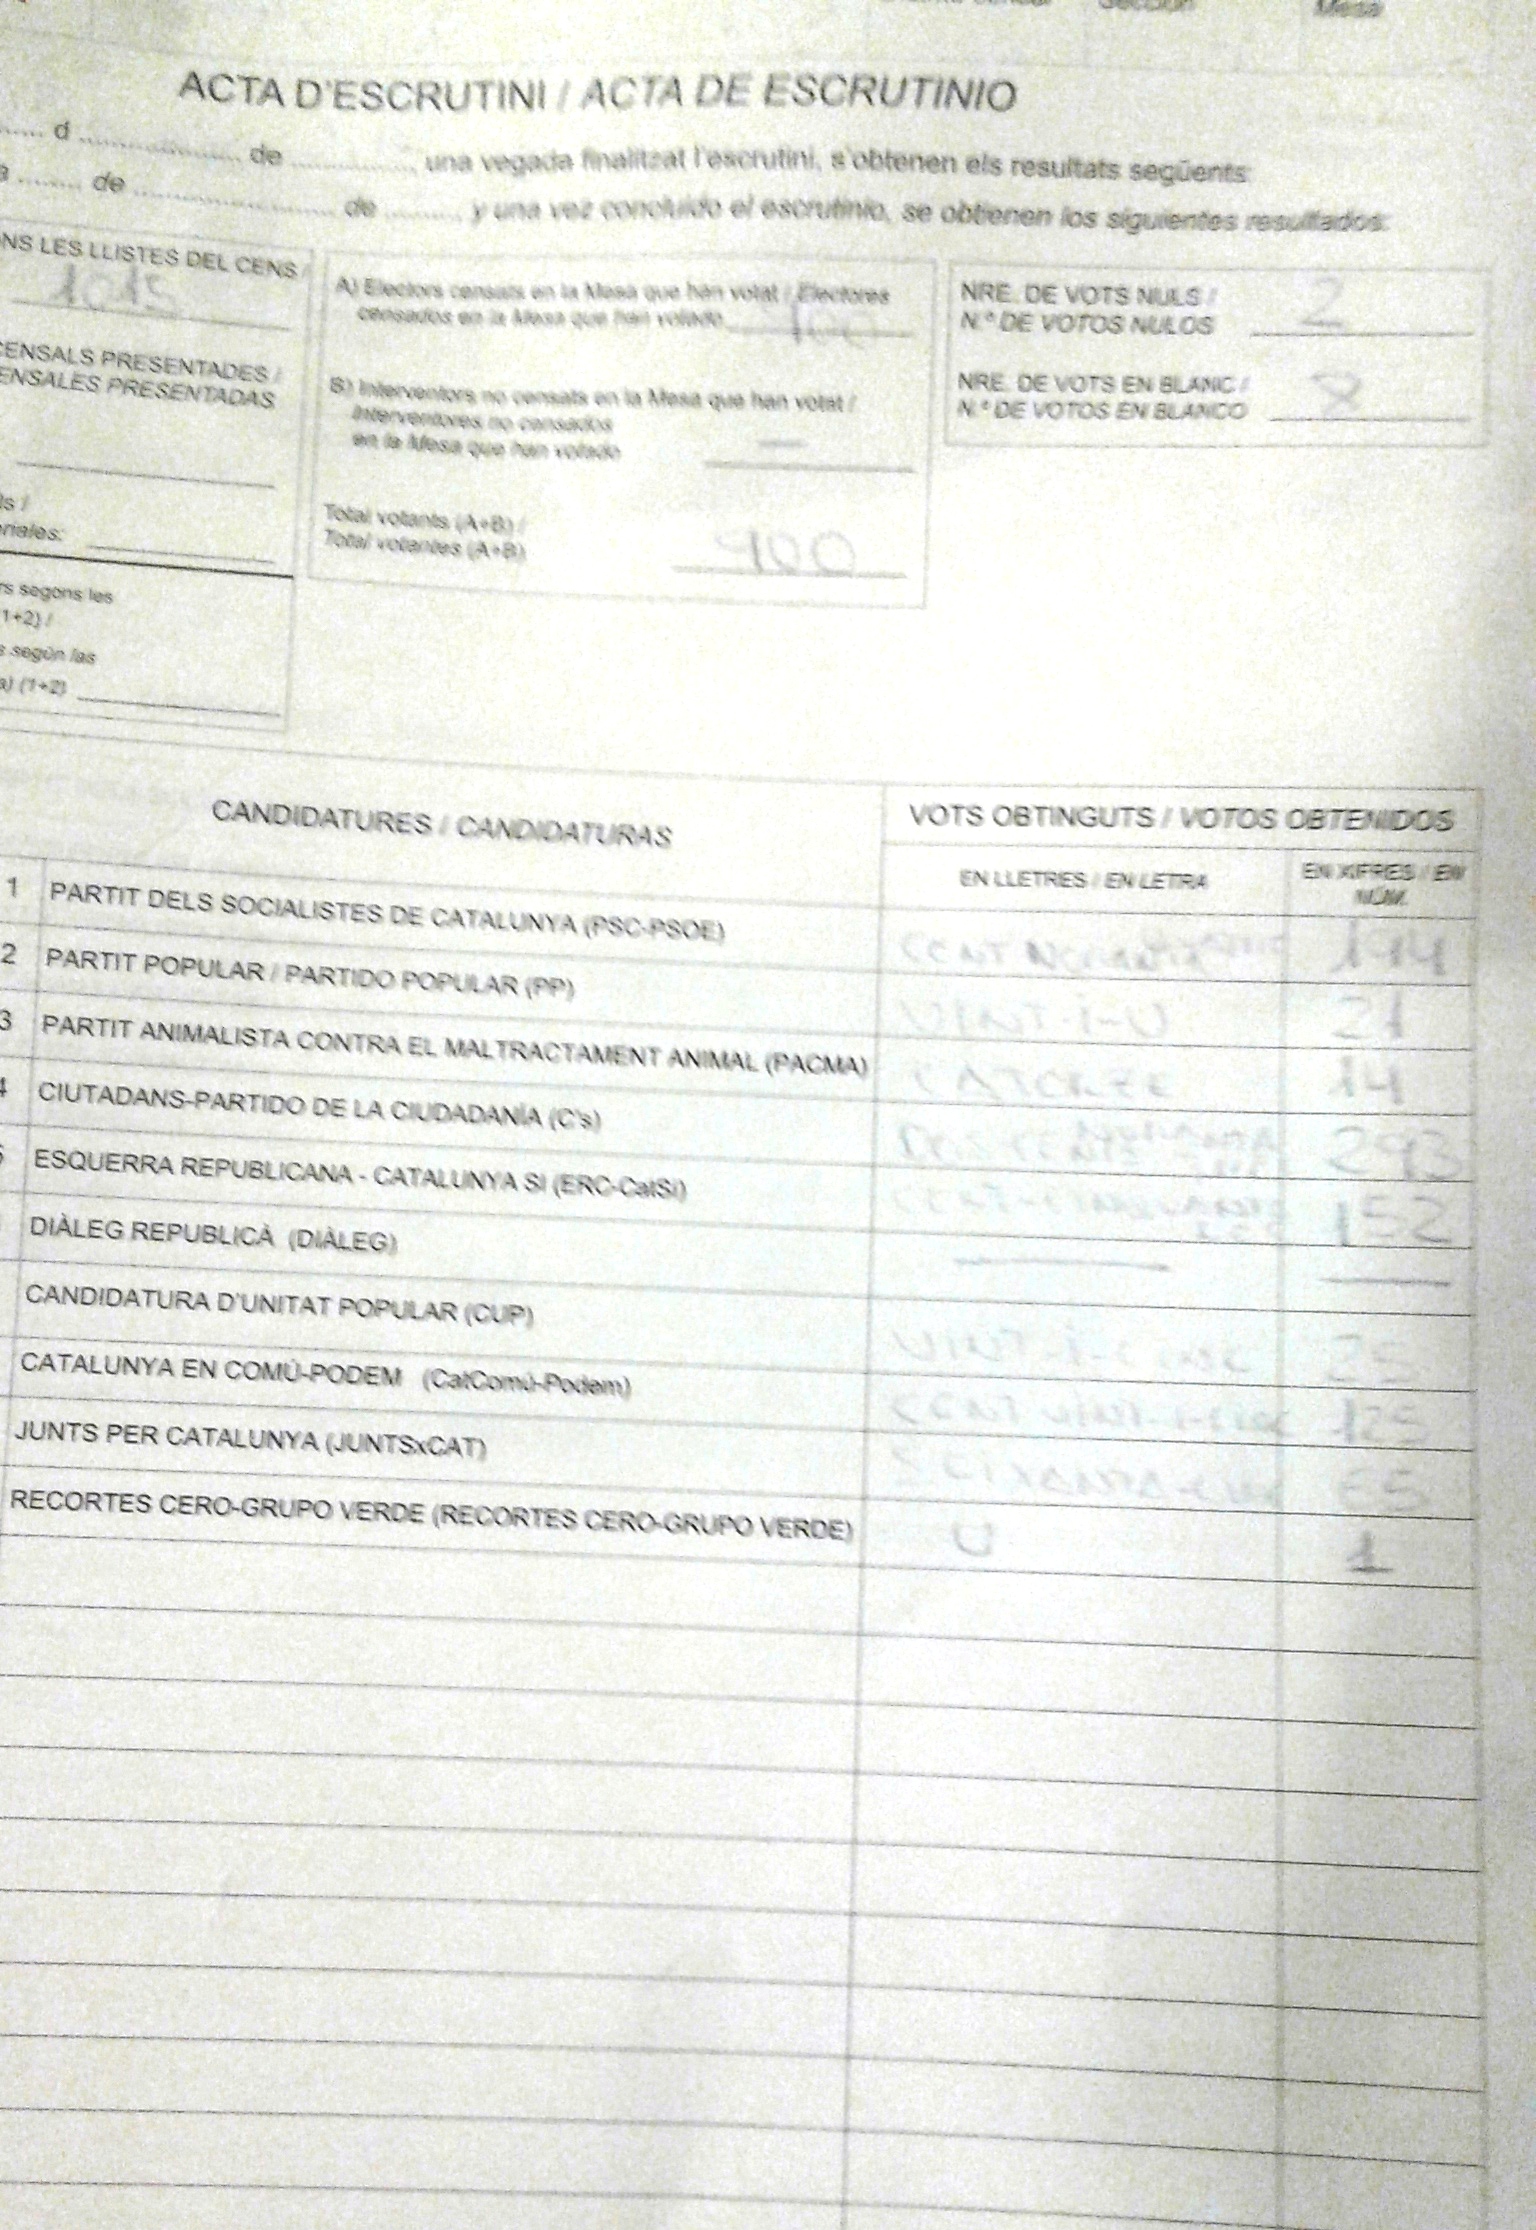 Sección Mesa
ACTA D'ESCRUTINI / ACTA DE ESCRUTINIO
...... d ...................... de ................, una vegada finalitzat l'escrutini, s'obtenen els resultats següents:
a ........ de .......................... de .......... y una vez concluido el escrutinio, se obtienen los siguientes resultados:
ONS LES LLISTES DEL CENS /
1015
CENSALS PRESENTADES /
ENSALES PRESENTADAS
ls /
riales:
rs segons les
1+2) /
s según las
a) (1+2)
A) Electors censats en la Mesa que han votat / Electores
censados en la Mesa que han votado 900
B) Interventors no censats en la Mesa que han votat /
Interventores no censados
en la Mesa que han votado —
Total votants (A+B) /
Total votantes (A+B) 900
NRE. DE VOTS NULS / 2
N.º DE VOTOS NULOS
NRE. DE VOTS EN BLANC / 8
N.º DE VOTOS EN BLANCO
CANDIDATURES / CANDIDATURAS
VOTS OBTINGUTS / VOTOS OBTENIDOS
EN LLETRES / EN LETRA
EN XIFRES / EN
NÚM.
1 PARTIT DELS SOCIALISTES DE CATALUNYA (PSC-PSOE) CENT NORANTA 194
2 PARTIT POPULAR / PARTIDO POPULAR (PP) VINT-I-U 21
3 PARTIT ANIMALISTA CONTRA EL MALTRACTAMENT ANIMAL (PACMA) CATORZE 14
4 CIUTADANS-PARTIDO DE LA CIUDADANÍA (C's) NORANTA 293
5 ESQUERRA REPUBLICANA - CATALUNYA SÍ (ERC-CatSí) 152
DIÀLEG REPUBLICÀ (DIÀLEG) — —
CANDIDATURA D'UNITAT POPULAR (CUP) VINT-I-CINC 25
CATALUNYA EN COMÚ-PODEM (CatComú-Podem) CENT VINT-I-CINC 125
JUNTS PER CATALUNYA (JUNTSxCAT) 65
RECORTES CERO-GRUPO VERDE (RECORTES CERO-GRUPO VERDE) U 1